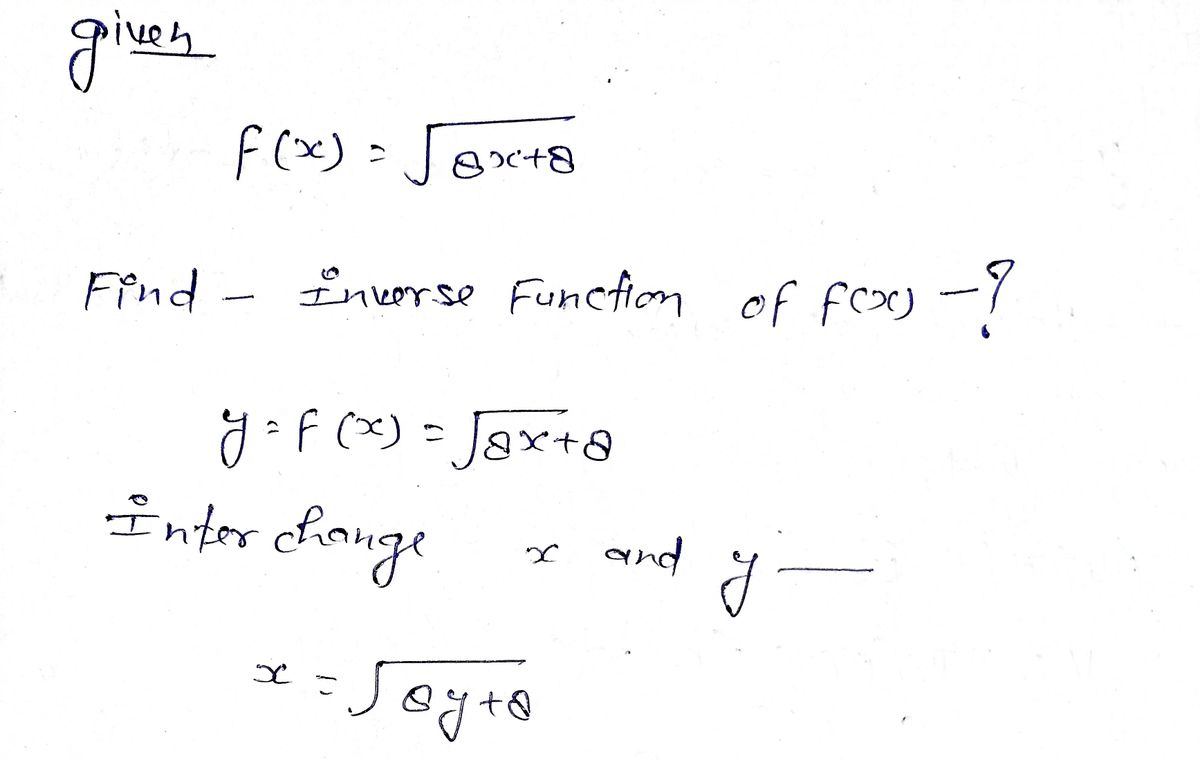 given
f(x) = √8x+8
Find - Inverse Function of f(x) -?
y = f(x) = √8x+8
Interchange x and y —
x = √8y+8